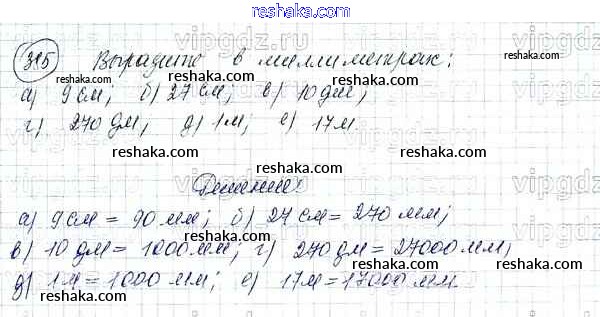 reshaka.com
315 Выразите в миллиметрах:
а) 9 см; б) 27 см; в) 10 дм;
reshaka.com reshaka.com
г) 270 дм; д) 1 м; е) 17 м.
reshaka.com reshaka.com
Решение:
reshaka.com
а) 9 см = 90 мм; б) 27 см = 270 мм;
reshaka.com reshaka.com
в) 10 дм = 1000 мм; г) 270 дм = 27000 мм;
reshaka.com
д) 1 м = 1000 мм; е) 17 м = 17000 мм.
reshaka.com reshaka.com